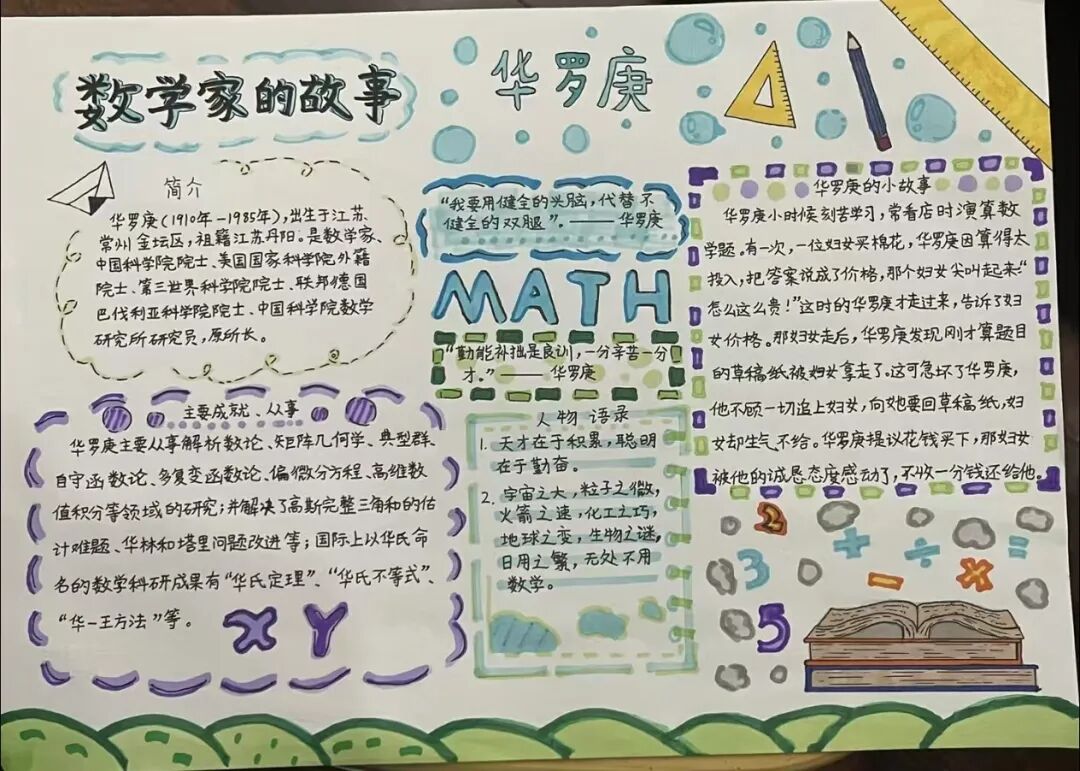 数学家的故事
华罗庚
简介
华罗庚(1910年-1985年),出生于江苏
常州金坛区,祖籍江苏丹阳。是数学家、
中国科学院院士、美国国家科学院外籍
院士、第三世界科学院院士、联邦德国
巴伐利亚科学院院士、中国科学院数学
研究所研究员,原所长。
主要成就、从事
华罗庚主要从事解析数论、矩阵几何学、典型群、
自守函数论、多复变函数论、偏微分方程、高维数
值积分等领域的研究;并解决了高斯完整三角和的估
计难题、华林和塔里问题改进等;国际上以华氏命
名的数学科研成果有“华氏定理”、“华氏不等式”、
“华—王方法”等。
X Y
“我要用健全的头脑,代替不
健全的双腿”。——华罗庚
MATH
“勤能补拙是良训,一分辛苦一分
才。”——华罗庚
人物语录
1. 天才在于积累,聪明
在于勤奋。
2. 宇宙之大,粒子之微,
火箭之速,化工之巧,
地球之变,生物之谜,
日用之繁,无处不用
数学。
华罗庚的小故事
华罗庚小时候刻苦学习,常看店时演算数
学题。有一次,一位妇女买棉花,华罗庚因算得太
投入,把答案说成了价格,那个妇女尖叫起来:“
怎么这么贵!”这时的华罗庚才走过来,告诉了妇
女价格。那妇女走后,华罗庚发现刚才算题目
的草稿纸被妇女拿走了。这可急坏了华罗庚,
他不顾一切追上妇女,向她要回草稿纸,妇
女却生气不给。华罗庚提议花钱买下,那妇女
被他的诚恳态度感动了,不收一分钱还给他。
2
+ ÷ =
3 − ×
5